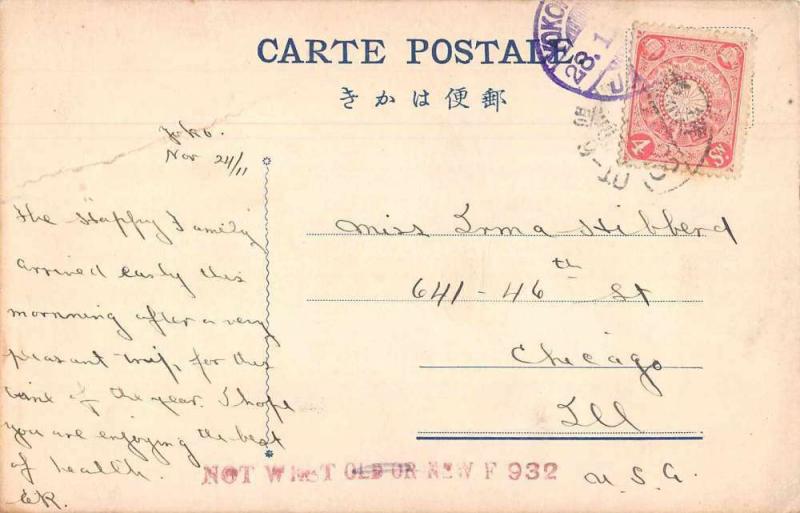 CARTE POSTALE
きかは便郵
YOKO
28.1
4 Sn
Yoko.
Nov 24/11
The "Happy Family"
arrived early this
mornning after a very
pleasant trip, for this
time of the year. I hope
you are enjoying the best
of health.
ER.
Miss Irma Hibberd
641-46th St
Chicago
Ill
U.S.A.
NOT W OLD OR NEW F 932